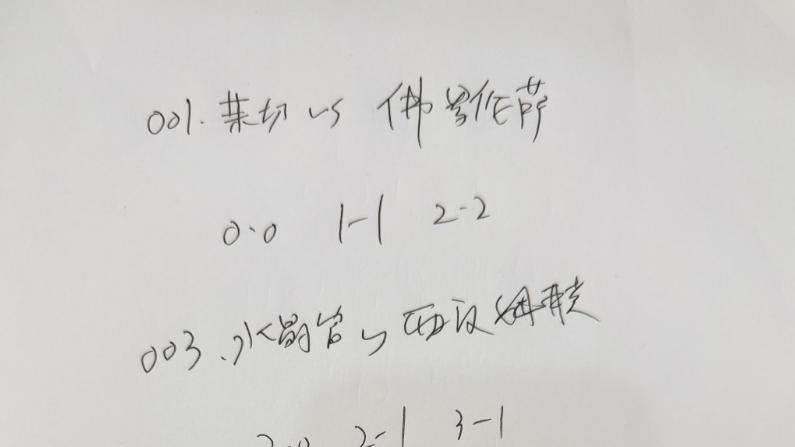 001.莱切 vs 佛罗伦萨
0-0 1-1 2-2
003.水晶宫 vs 西汉姆联
2-0 2-1 3-1